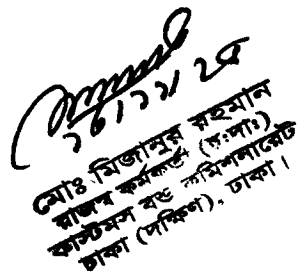 মোঃ মিজানুর রহমান
রাজস্ব কর্মকর্তা (চঃদাঃ)
কাস্টমস বন্ড কমিশনারেট
ঢাকা (দক্ষিণ), ঢাকা।